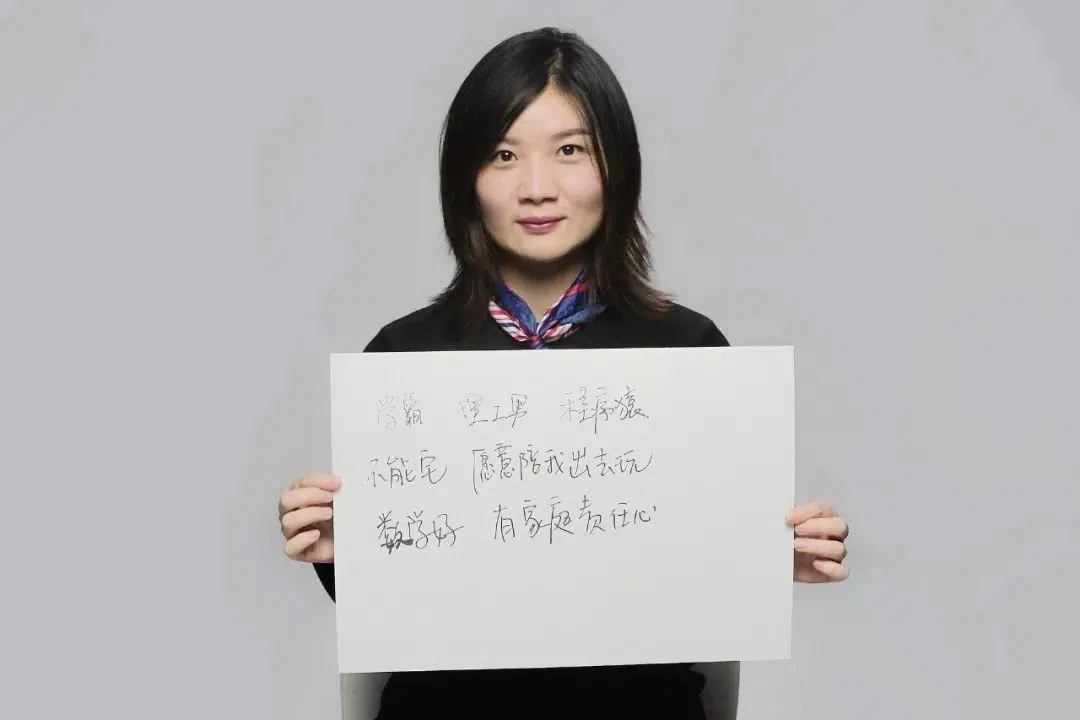 学霸 理工男 程序猿
不能宅 愿意陪我出去玩
数学好 有家庭责任心